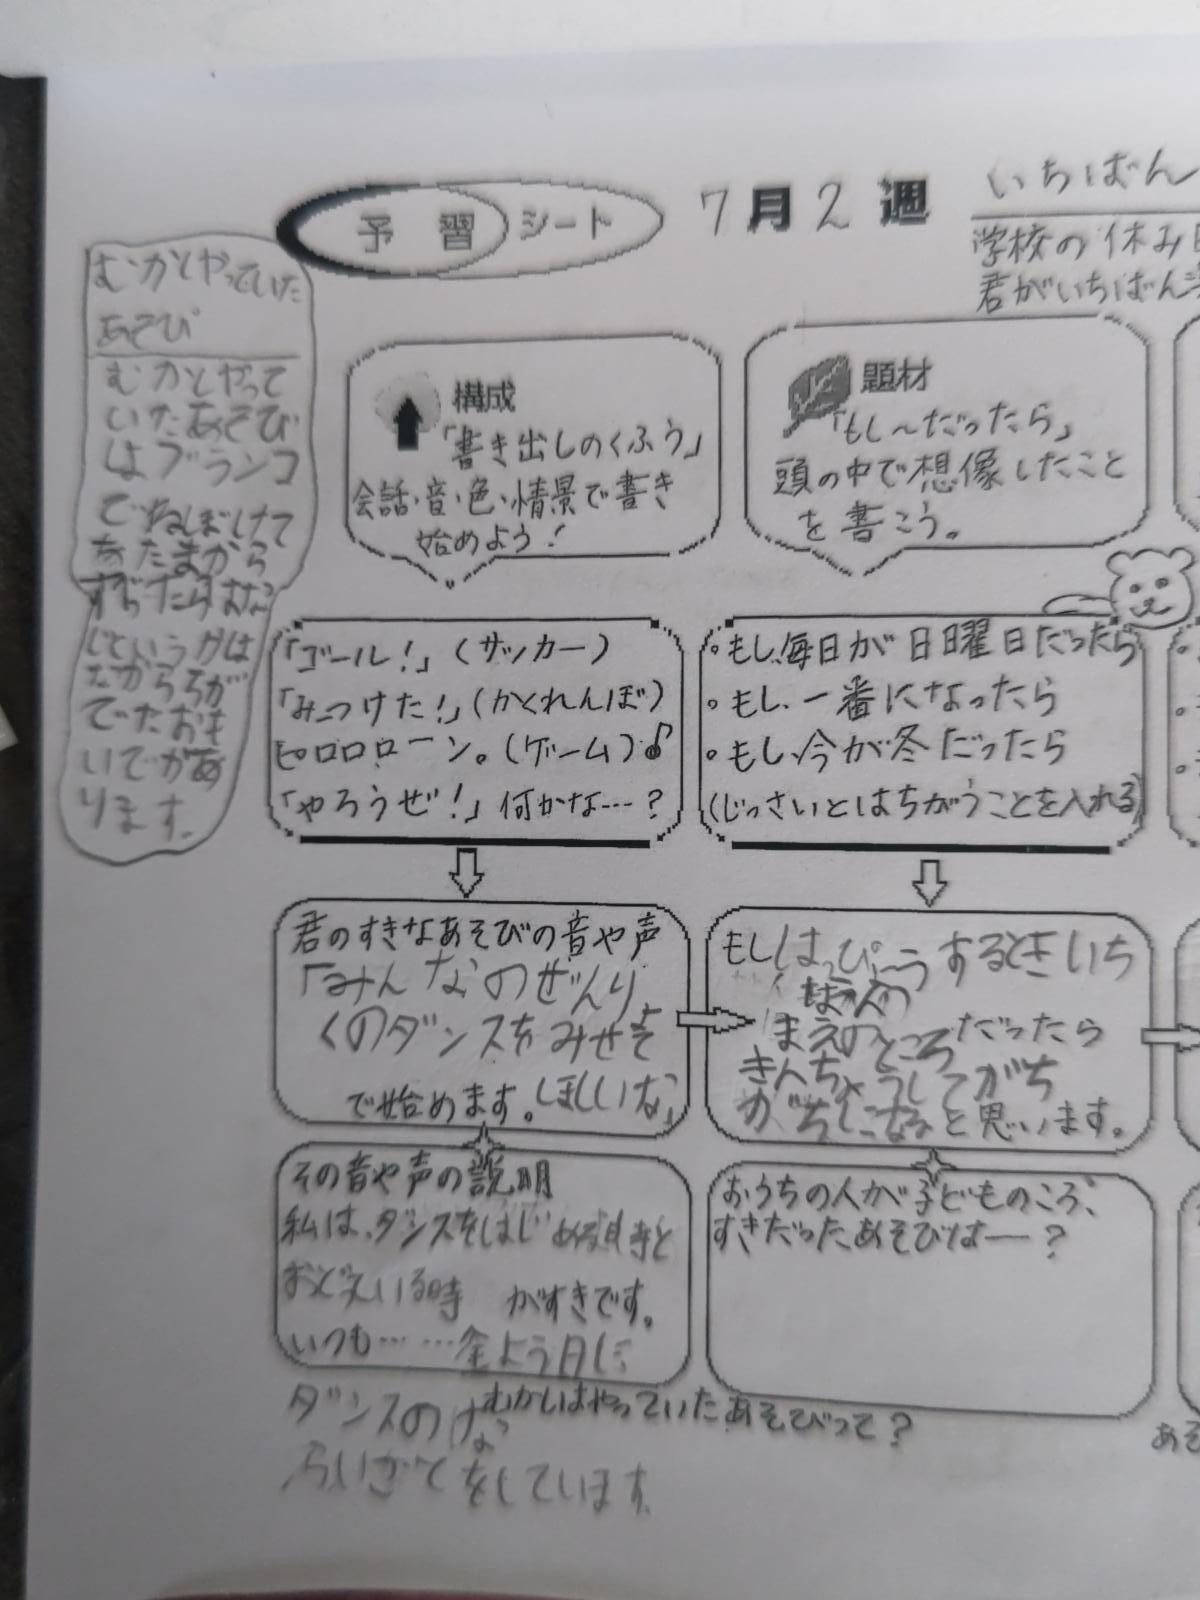 予習シート
7月2週
いちばん
学校の休み
君がいちばん
むかしやっていた
あそび
むかしやって
いたあそび
はブランコ
でねぼけて
あたまから
すべったらはな
じというかは
なからちが
でたおも
いでがあ
ります。
構成
「書き出しのくふう」
会話・音・色・情景で書き
始めよう!
題材
「もし〜だったら」
頭の中で想像したこと
を書こう。
「ゴール!」(サッカー)
「みつけた!」(かくれんぼ)
ピロロローン。(ゲーム)♪
「やろうぜ!」何かな…?
・もし、毎日が日曜日だったら
・もし、一番になったら
・もし、今が冬だったら
(じっさいとはちがうことを入れる)
君のすきなあそびの音や声
「みんなのぜんりょ
くのダンスをみせて
で始めます。ほしいな」
もしはっぴょうするときいち
ばんの
まえのところだったら
きんちょうしてがち
がちになると思います。
その音や声の説明
私は、ダンスをはじめる時と
おどっている時がすきです。
いつも……金よう日に
ダンスのな
らいごとをしています
おうちの人が子どものころ、
すきだったあそびは―?
むかしはやっていたあそびって?